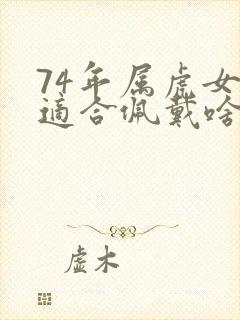 74年属虎女
适合佩戴啥
虚木